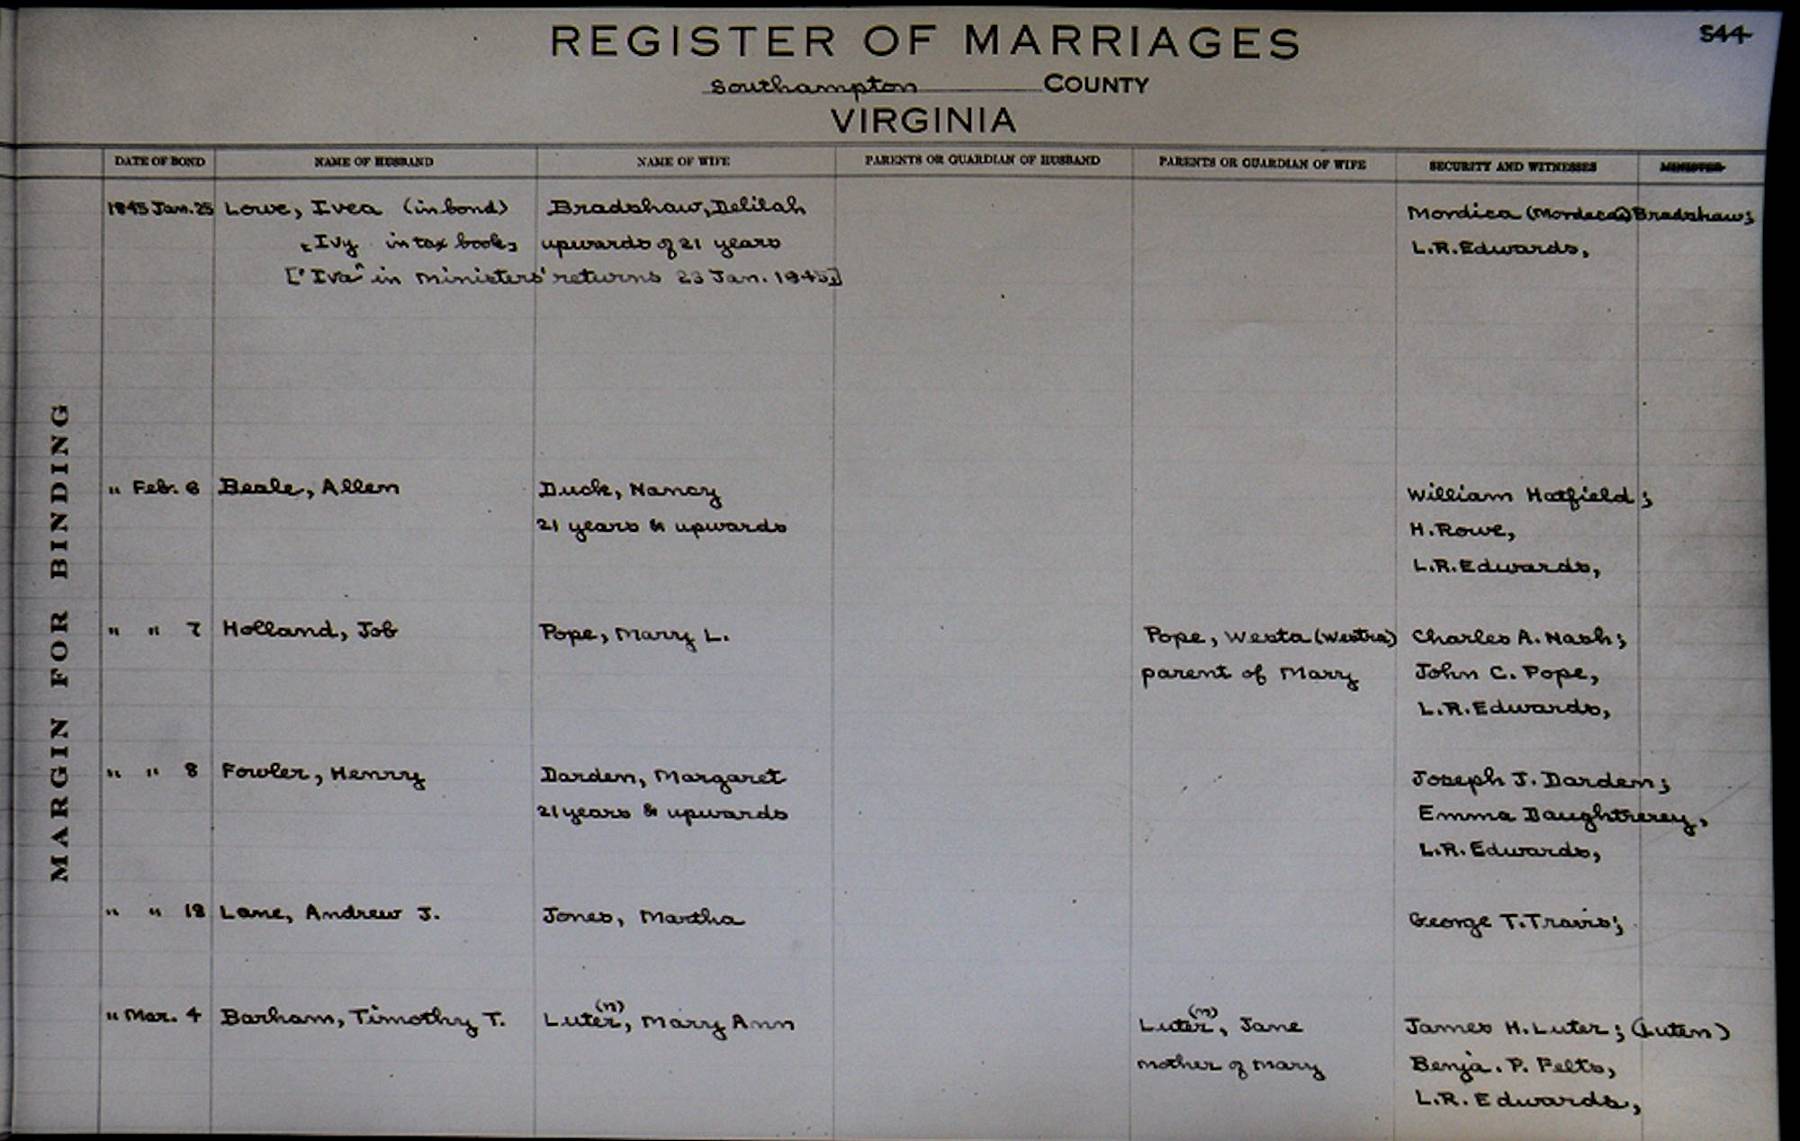 REGISTER OF MARRIAGES
544
Southampton COUNTY
VIRGINIA
DATE OF BOND NAME OF HUSBAND NAME OF WIFE PARENTS OR GUARDIAN OF HUSBAND PARENTS OR GUARDIAN OF WIFE SECURITY AND WITNESSES MINISTER
1845 Jan. 25 Lowe, Ivea (in bond) Bradshaw, Delilah Mordica (Mordecai) Bradshaw;
[Ivy in tax book] upwards of 21 years L.R. Edwards,
["Iva" in Ministers' returns 23 Jan. 1845]
" Feb. 6 Beale, Allen Duck, Nancy William Hatfield;
21 years & upwards H. Rowe,
L.R. Edwards,
" " 7 Holland, Job Pope, Mary L. Pope, Westa (Westra) Charles A. Nash;
parent of Mary John C. Pope,
L.R. Edwards,
" " 8 Fowler, Henry Darden, Margaret Joseph J. Darden;
21 years & upwards Emma Daughtrerey,
L.R. Edwards,
" " 18 Lane, Andrew J. Jones, Martha George T. Travis;
" Mar. 4 Barham, Timothy T. Luter(n), Mary Ann Luter(n), Jane James H. Luter; (Luten)
mother of Mary Benja. P. Felts,
L.R. Edwards,
MARGIN FOR BINDING